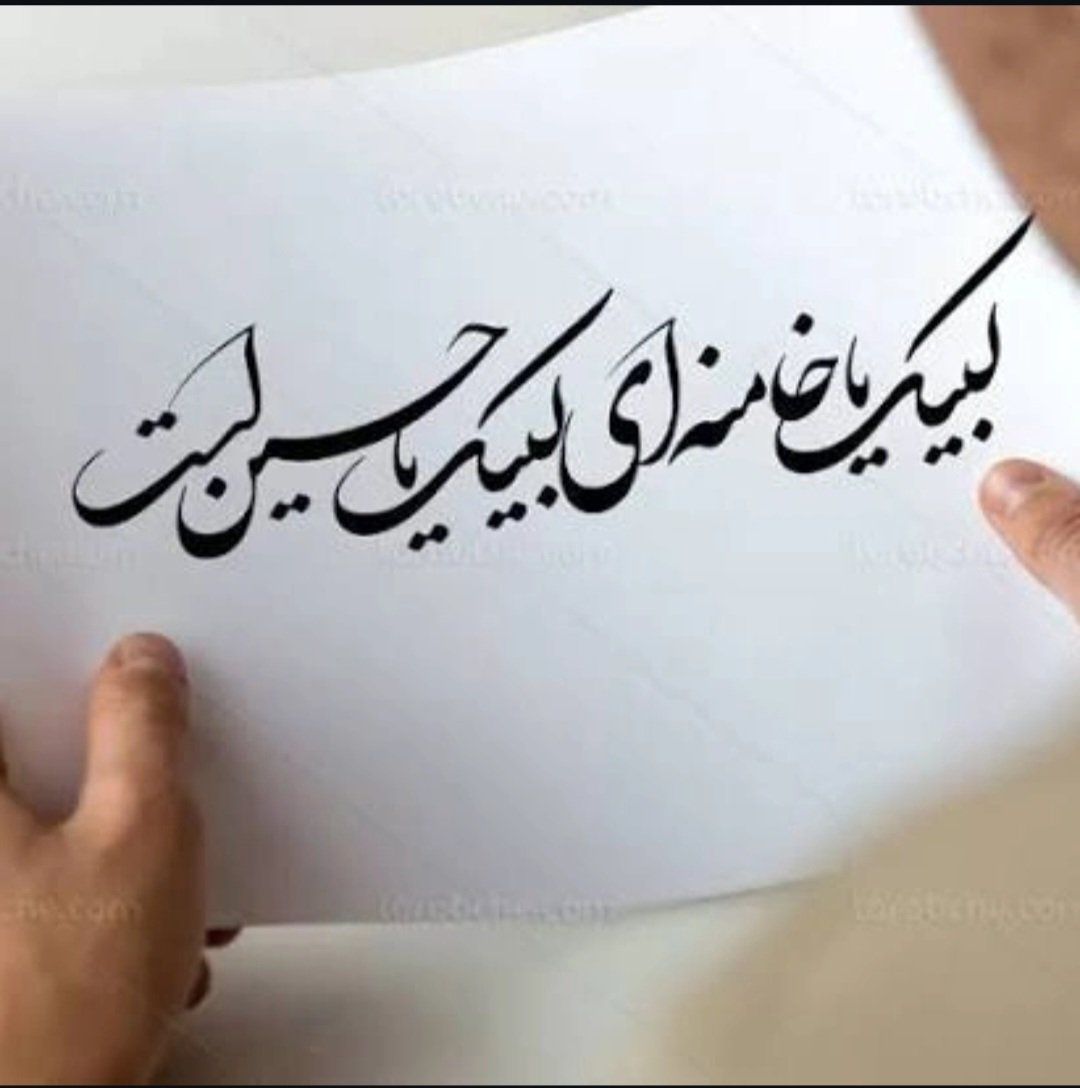 لبیک یا خامنه ای لبیک یا حسین است